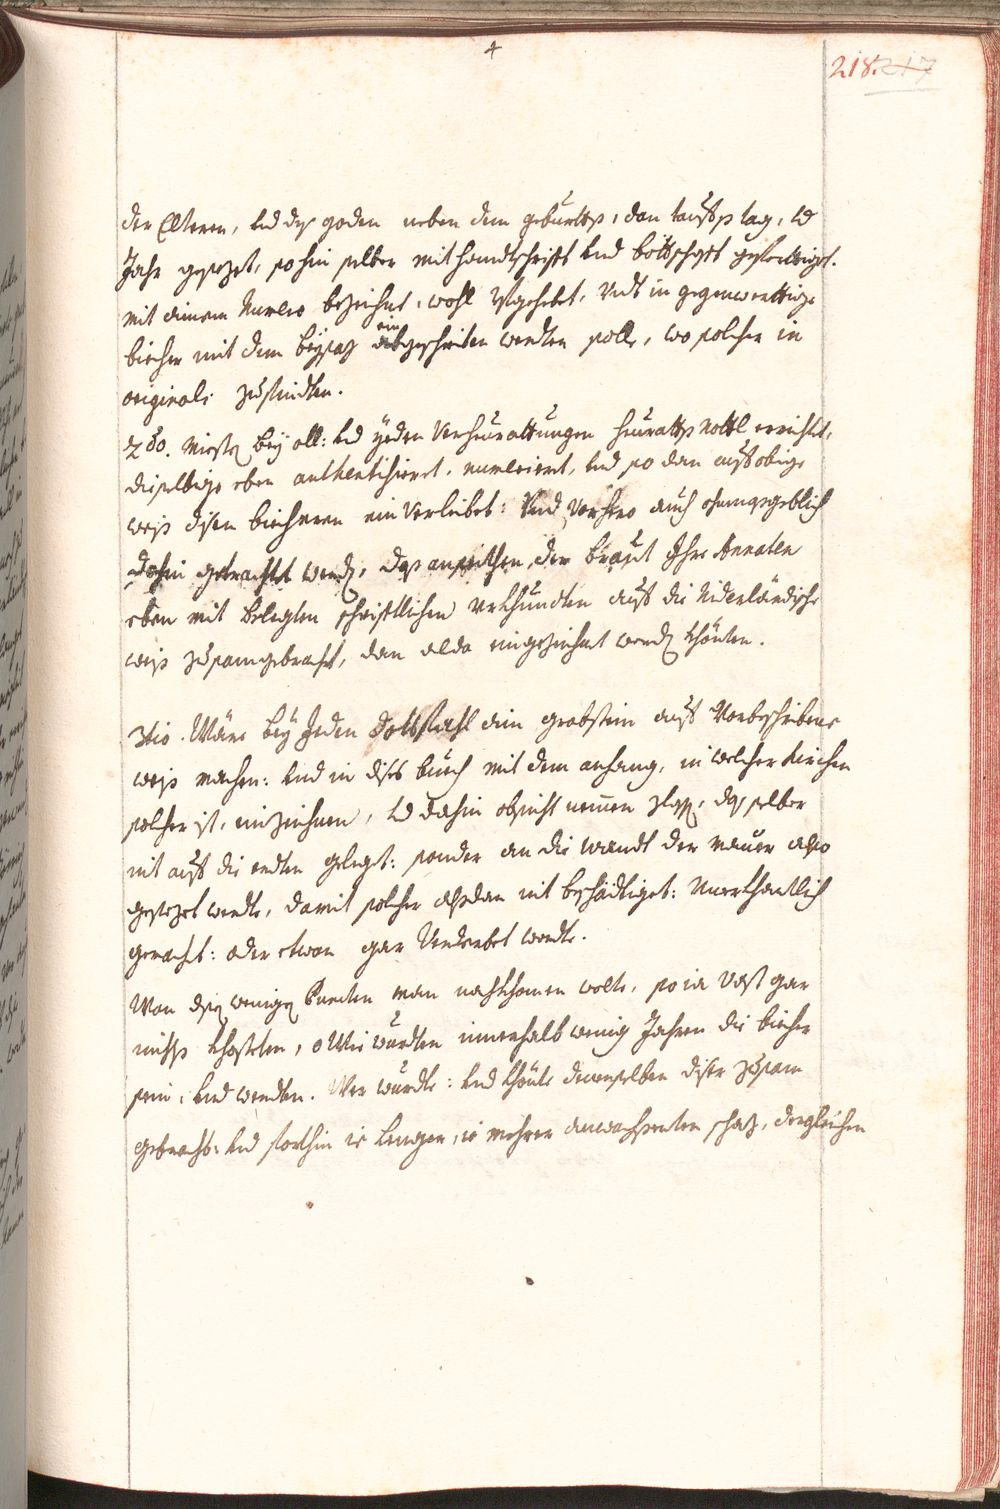 4
218. 217
der Elteren, und des goden neben dem geburtts, dan taufs tag, und
Jahr gesezet, sohin selber mit handtschrifft und bottschafft gefertiget.
mit einem Numero bezeichnet, wohl aufgehebt, Undt in gegenwerttige
biecher mit dem beysaz eingeschriben werdten solle, wo solcher in
originali zufindten.
2do. Mieste bey all: und yeden Verheurattungen heuratts Nottl errichtet,
dieselbige eben authentisieret, numerieret, und so dan auf obige
weis disen biecheren ein Verleibet: Und Vorhero auch ohnmasgeblich
dahin getrachtet werden, das anseithen der braut Ihre Annaten
eben mit belegten schrifftlichen Urkhundten auf die Niderländische
weis zusamgebracht, dan alda eingezeichnet werden khönten.
3tio. Wäre bey Jeden Todtsfahl ein grabstein auf Vorbeschribene
weis machen: und in dises buech mit dem anhang, in welcher Kirchen
solcher ist, einzeichnen, und dahin obsicht nemmen zlassen, das selber
nit auf die erdten geleget: sonder an die wandt der mauer also
gesezet werdte, damit solcher alsdan nit beschädtiget: Unerkhantlich
gemacht: oder etwan gar Verderbet werdte.
Wan disen wenigen Puncten man nachkhomen wolte, so ia Vast gar
nichts khosteten, o wie wurdten innerhalb wenig Jahren die biecher
sein, und werdten. Wer wurdte: und khönte denenselben diser zusam
gebracht: und forthin ie lenger, ie mehrer anwachsenten schaz, dergleichen